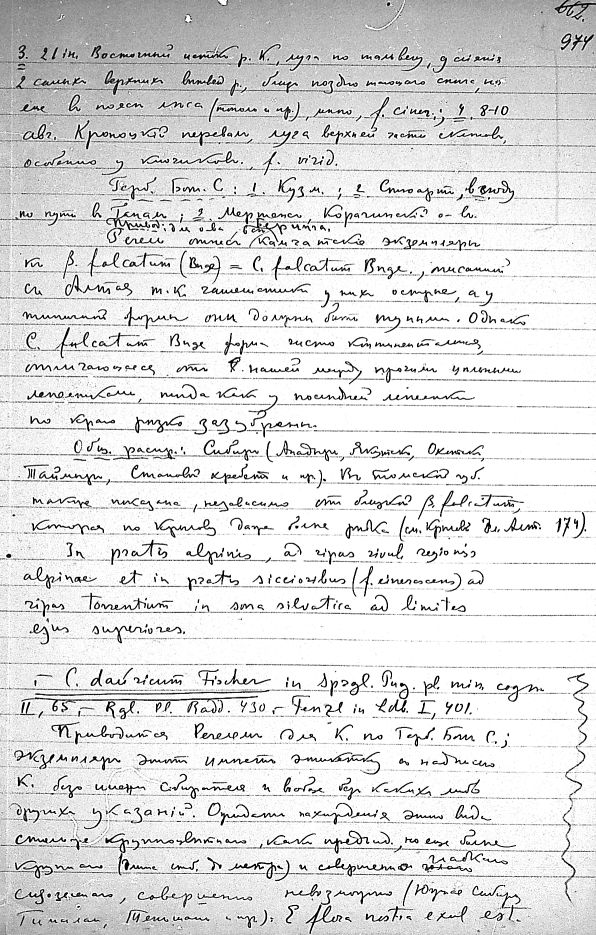 662.
974
3. 21 in. Восточный исток р. К., луга по тальвегу, у слияния
2 самых верхних ветвей р., близ поздно тающего снега, но
еще в поясе леса (тополь и пр.), f. ciner.; 4. 8-10
авг. Кроноцкий перевал, луга верхней части склонов,
особенно у ключиков, f. virid.
Герб. Бот. С: 1. Кузм.; 2. Стюарт, в 
по пути в Генал; 3. Мертенс, Карагинский о-в.
Привод. для о-ва Беринга.
Регель отнес Камчатские экземпляры
к β. falcatum (Bnge) = C. falcatum Bnge., описанный
с Алтая т.к. чашелистики у них острые, а у
типичной формы они должны быть тупыми. Однако
C. falcatum Bnge форма чисто континентальная,
отличающаяся от нашей между прочим цельными
лепестками, тогда как у последней лепестки
по краю резко зазубрены.
Общ. распр.: Сибирь (Анадырь, Якутск, Охотск,
Таймыр, Становой хребет и пр.). В Томской губ.
также показана, независимо от близкой β. falcatum,
которая по Крылову даже более редка (см. Крылов Фл. Алт. 174).
In pratis alpinis, ad ripas rivul. regionis
alpinae et in pratis siccioribus (f. cinerascens) ad
ripas torrentium in zona silvatica ad limites
ejus superiores.
— C. davuricum Fischer in Sprgl. Pug. pl. min. cogn.
II, 65, — Rgl. Pl. Radd. 430. — Fenzl in Ldb. I, 401.
Приводится Регелем для К. по Герб. Бот. С.;
экземпляр этот имеет этикетку с надписью
К. без имени собирателя и вообще без каких либо
других указаний. Ожидать нахождения этого вида
столь же крупноцветного, как предыд., но еще более
крупного (длина стебл. до метра) и совершенно гладкого
сизоватого, совершенно невозможно (Южная Сибирь
Гималаи, Тяньшань и пр.): E flora nostra exul est.